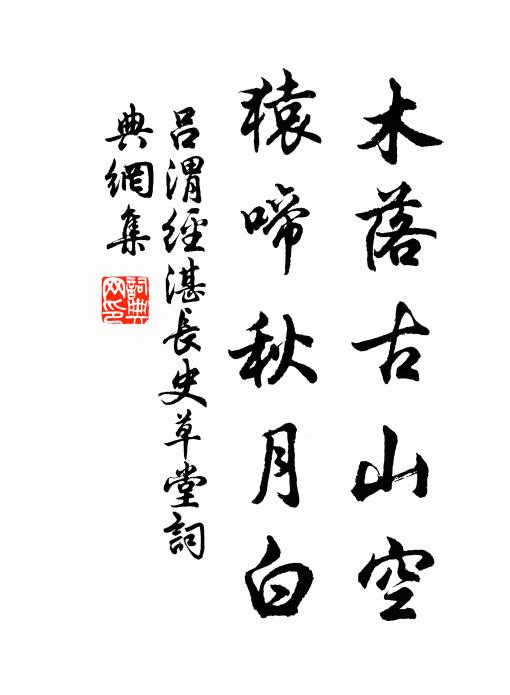 木落古山空
猿啼秋月白
呂渭經湛長史草堂詞
典網集
詞典網印